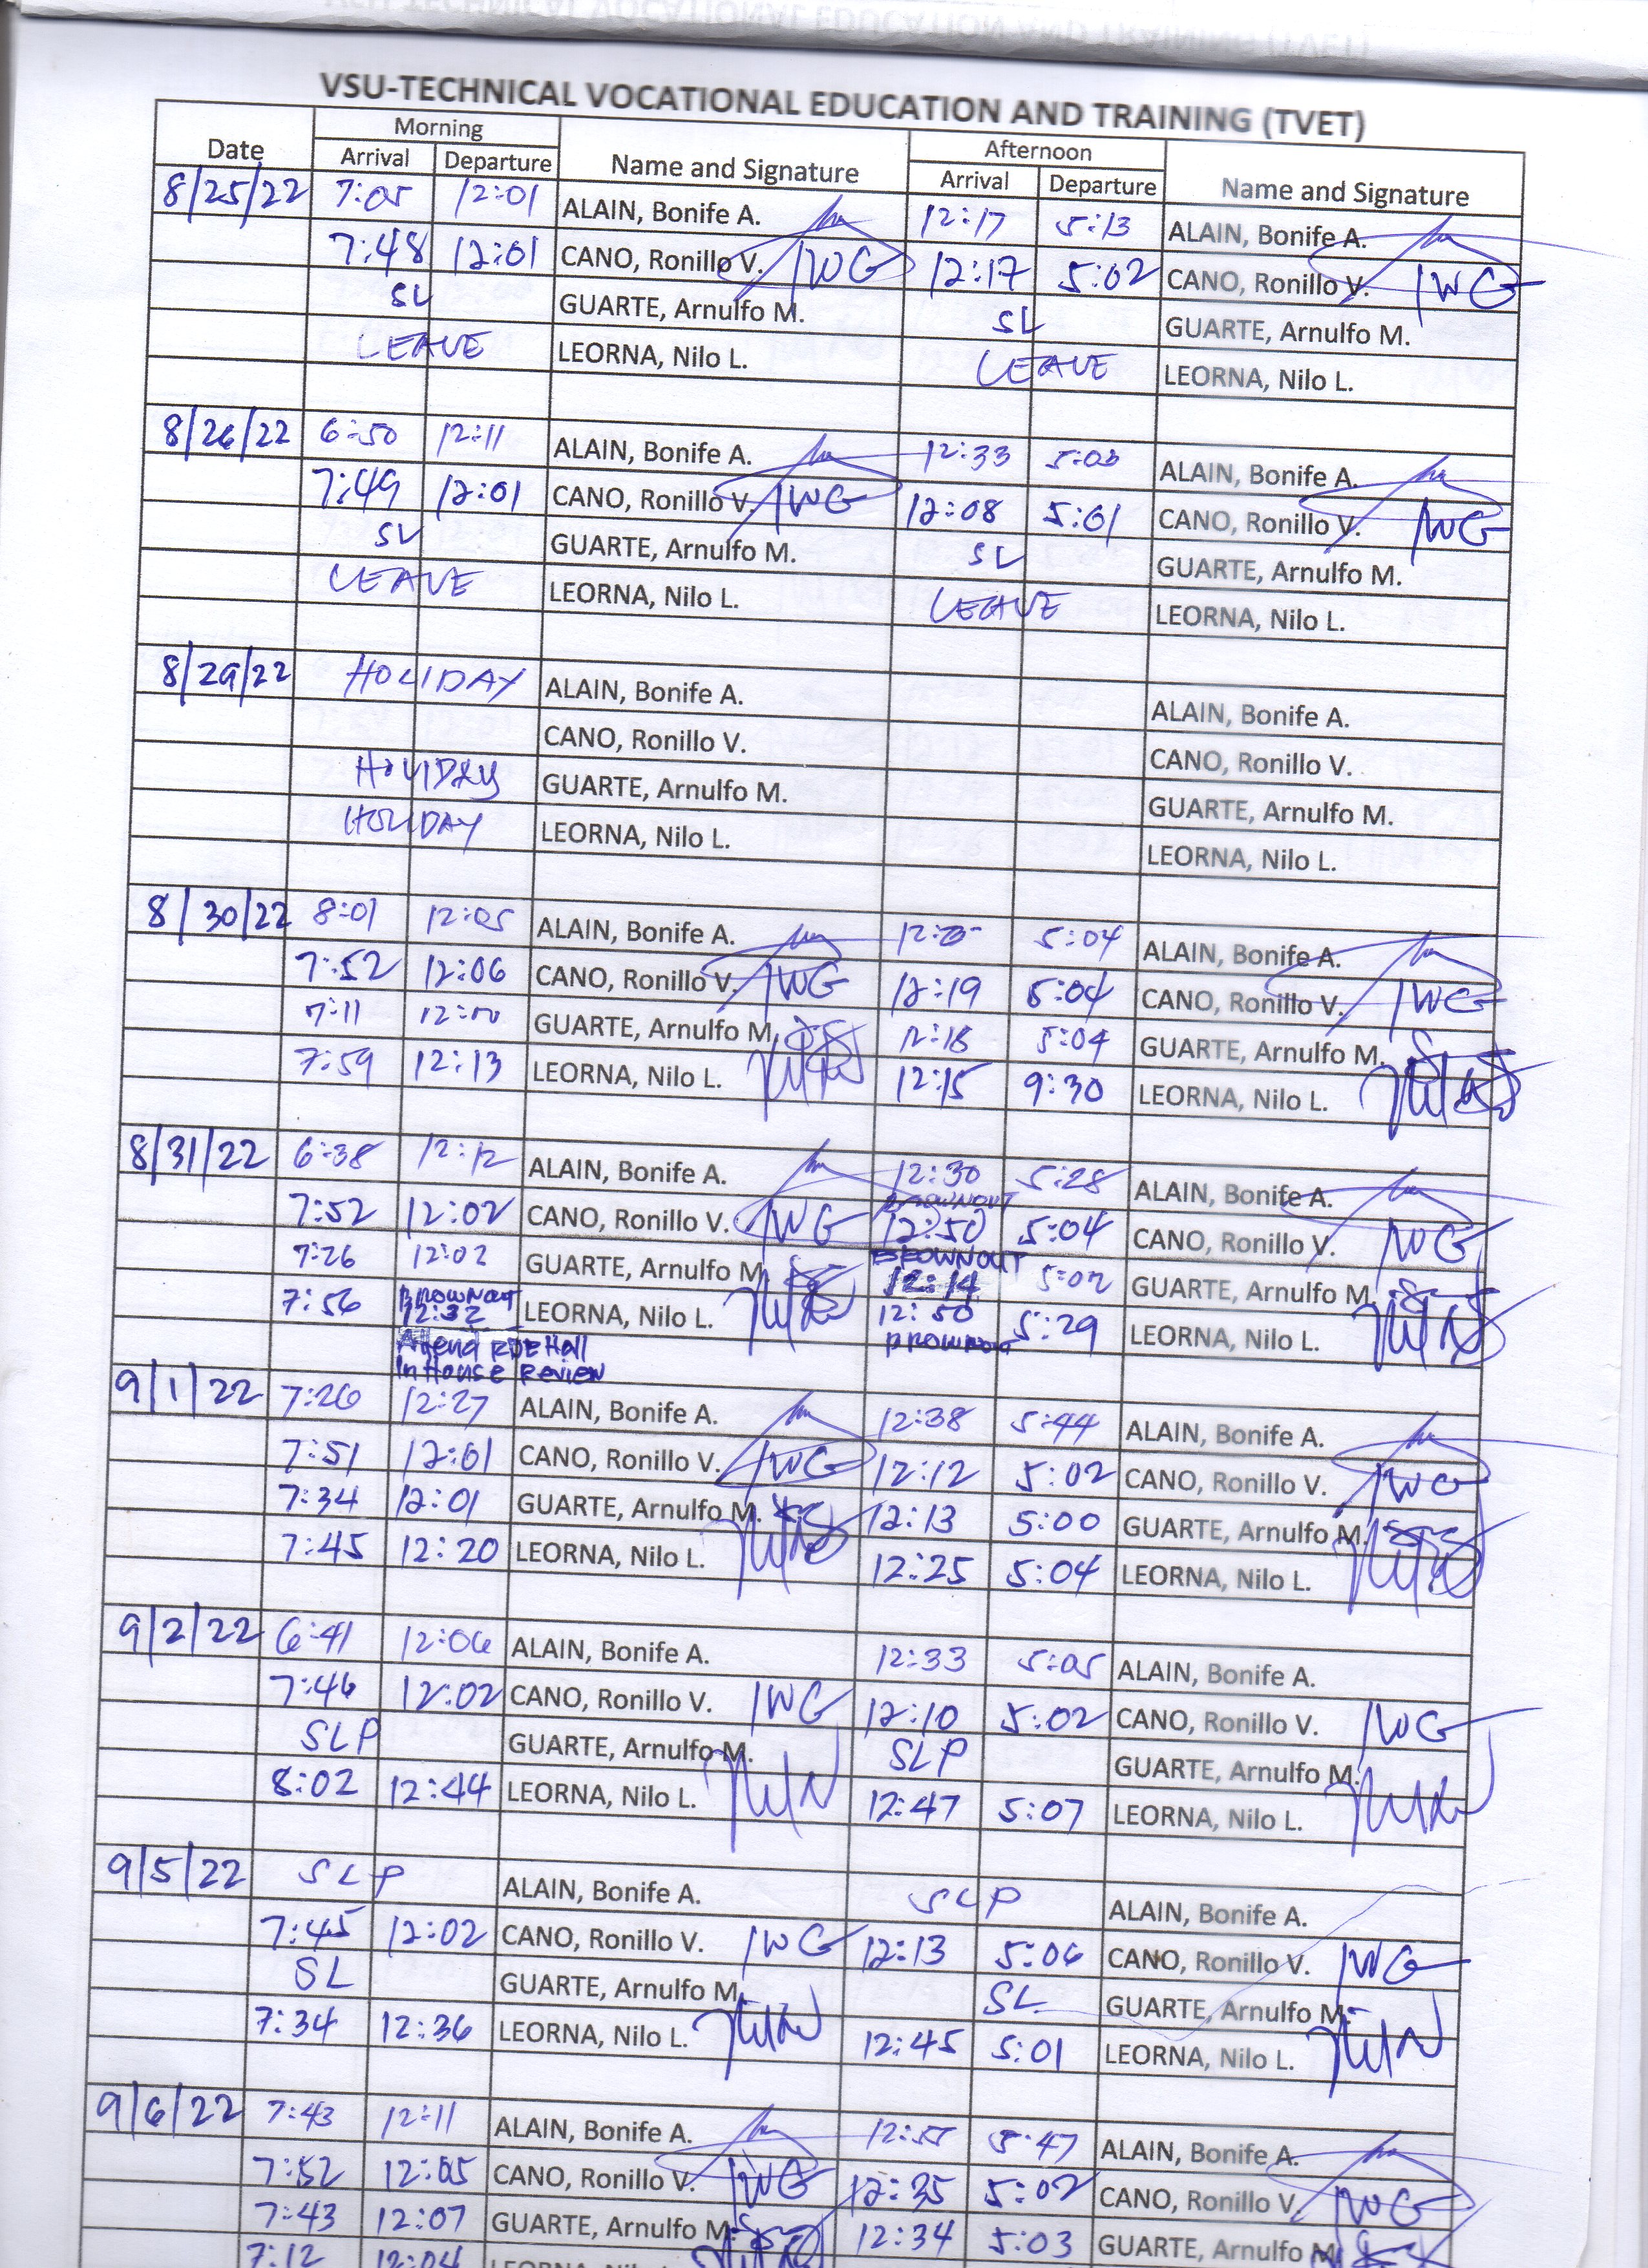 VSU-TECHNICAL VOCATIONAL EDUCATION AND TRAINING (TVET)
Morning Afternoon
Date Arrival Departure Name and Signature Arrival Departure Name and Signature
8/25/22 7:05 12:01 ALAIN, Bonife A. 12:17 5:13 ALAIN, Bonife A.
7:48 12:01 CANO, Ronillo V. 12:17 5:02 CANO, Ronillo V.
SL GUARTE, Arnulfo M. SL GUARTE, Arnulfo M.
LEAVE LEORNA, Nilo L. LEAVE LEORNA, Nilo L.
8/26/22 6:50 12:11 ALAIN, Bonife A. 12:33 ALAIN, Bonife A.
7:49 12:01 CANO, Ronillo V. 12:08 5:01 CANO, Ronillo V.
SL GUARTE, Arnulfo M. SL GUARTE, Arnulfo M.
LEAVE LEORNA, Nilo L. LEAVE LEORNA, Nilo L.
8/29/22 HOLIDAY ALAIN, Bonife A. ALAIN, Bonife A.
CANO, Ronillo V. CANO, Ronillo V.
HOLIDAY GUARTE, Arnulfo M. GUARTE, Arnulfo M.
HOLIDAY LEORNA, Nilo L. LEORNA, Nilo L.
8/30/22 8:01 12:05 ALAIN, Bonife A. 5:04 ALAIN, Bonife A.
7:52 12:06 CANO, Ronillo V. 12:19 5:04 CANO, Ronillo V.
7:11 GUARTE, Arnulfo M. 12:18 5:04 GUARTE, Arnulfo M.
7:59 12:13 LEORNA, Nilo L. 12:15 9:30 LEORNA, Nilo L.
8/31/22 6:38 12:12 ALAIN, Bonife A. 12:30 5:28 ALAIN, Bonife A.
BROWNOUT
7:52 12:02 CANO, Ronillo V. 12:50 5:04 CANO, Ronillo V.
BROWNOUT
7:26 12:02 GUARTE, Arnulfo M. 12:14 5:02 GUARTE, Arnulfo M.
BROWNOUT
7:56 12:32 LEORNA, Nilo L. 12:50 5:29 LEORNA, Nilo L.
Attend RDE Hall BROWNOUT
In House Review
9/1/22 7:26 12:27 ALAIN, Bonife A. 12:38 5:44 ALAIN, Bonife A.
7:51 12:01 CANO, Ronillo V. 12:12 5:02 CANO, Ronillo V.
7:34 12:01 GUARTE, Arnulfo M. 12:13 5:00 GUARTE, Arnulfo M.
7:45 12:20 LEORNA, Nilo L. 12:25 5:04 LEORNA, Nilo L.
9/2/22 6:41 12:06 ALAIN, Bonife A. 12:33 5:05 ALAIN, Bonife A.
7:46 12:02 CANO, Ronillo V. 12:10 5:02 CANO, Ronillo V.
SLP GUARTE, Arnulfo M. SLP GUARTE, Arnulfo M.
8:02 12:44 LEORNA, Nilo L. 12:47 5:07 LEORNA, Nilo L.
9/5/22 SLP ALAIN, Bonife A. SLP ALAIN, Bonife A.
7:45 12:02 CANO, Ronillo V. 12:13 5:06 CANO, Ronillo V.
SL GUARTE, Arnulfo M. SL GUARTE, Arnulfo M.
7:34 12:36 LEORNA, Nilo L. 12:45 5:01 LEORNA, Nilo L.
9/6/22 7:43 12:11 ALAIN, Bonife A. 12:55 5:47 ALAIN, Bonife A.
7:52 12:05 CANO, Ronillo V. 12:35 5:02 CANO, Ronillo V.
7:43 12:07 GUARTE, Arnulfo M. 12:34 5:03 GUARTE, Arnulfo M.
7:12 12:04